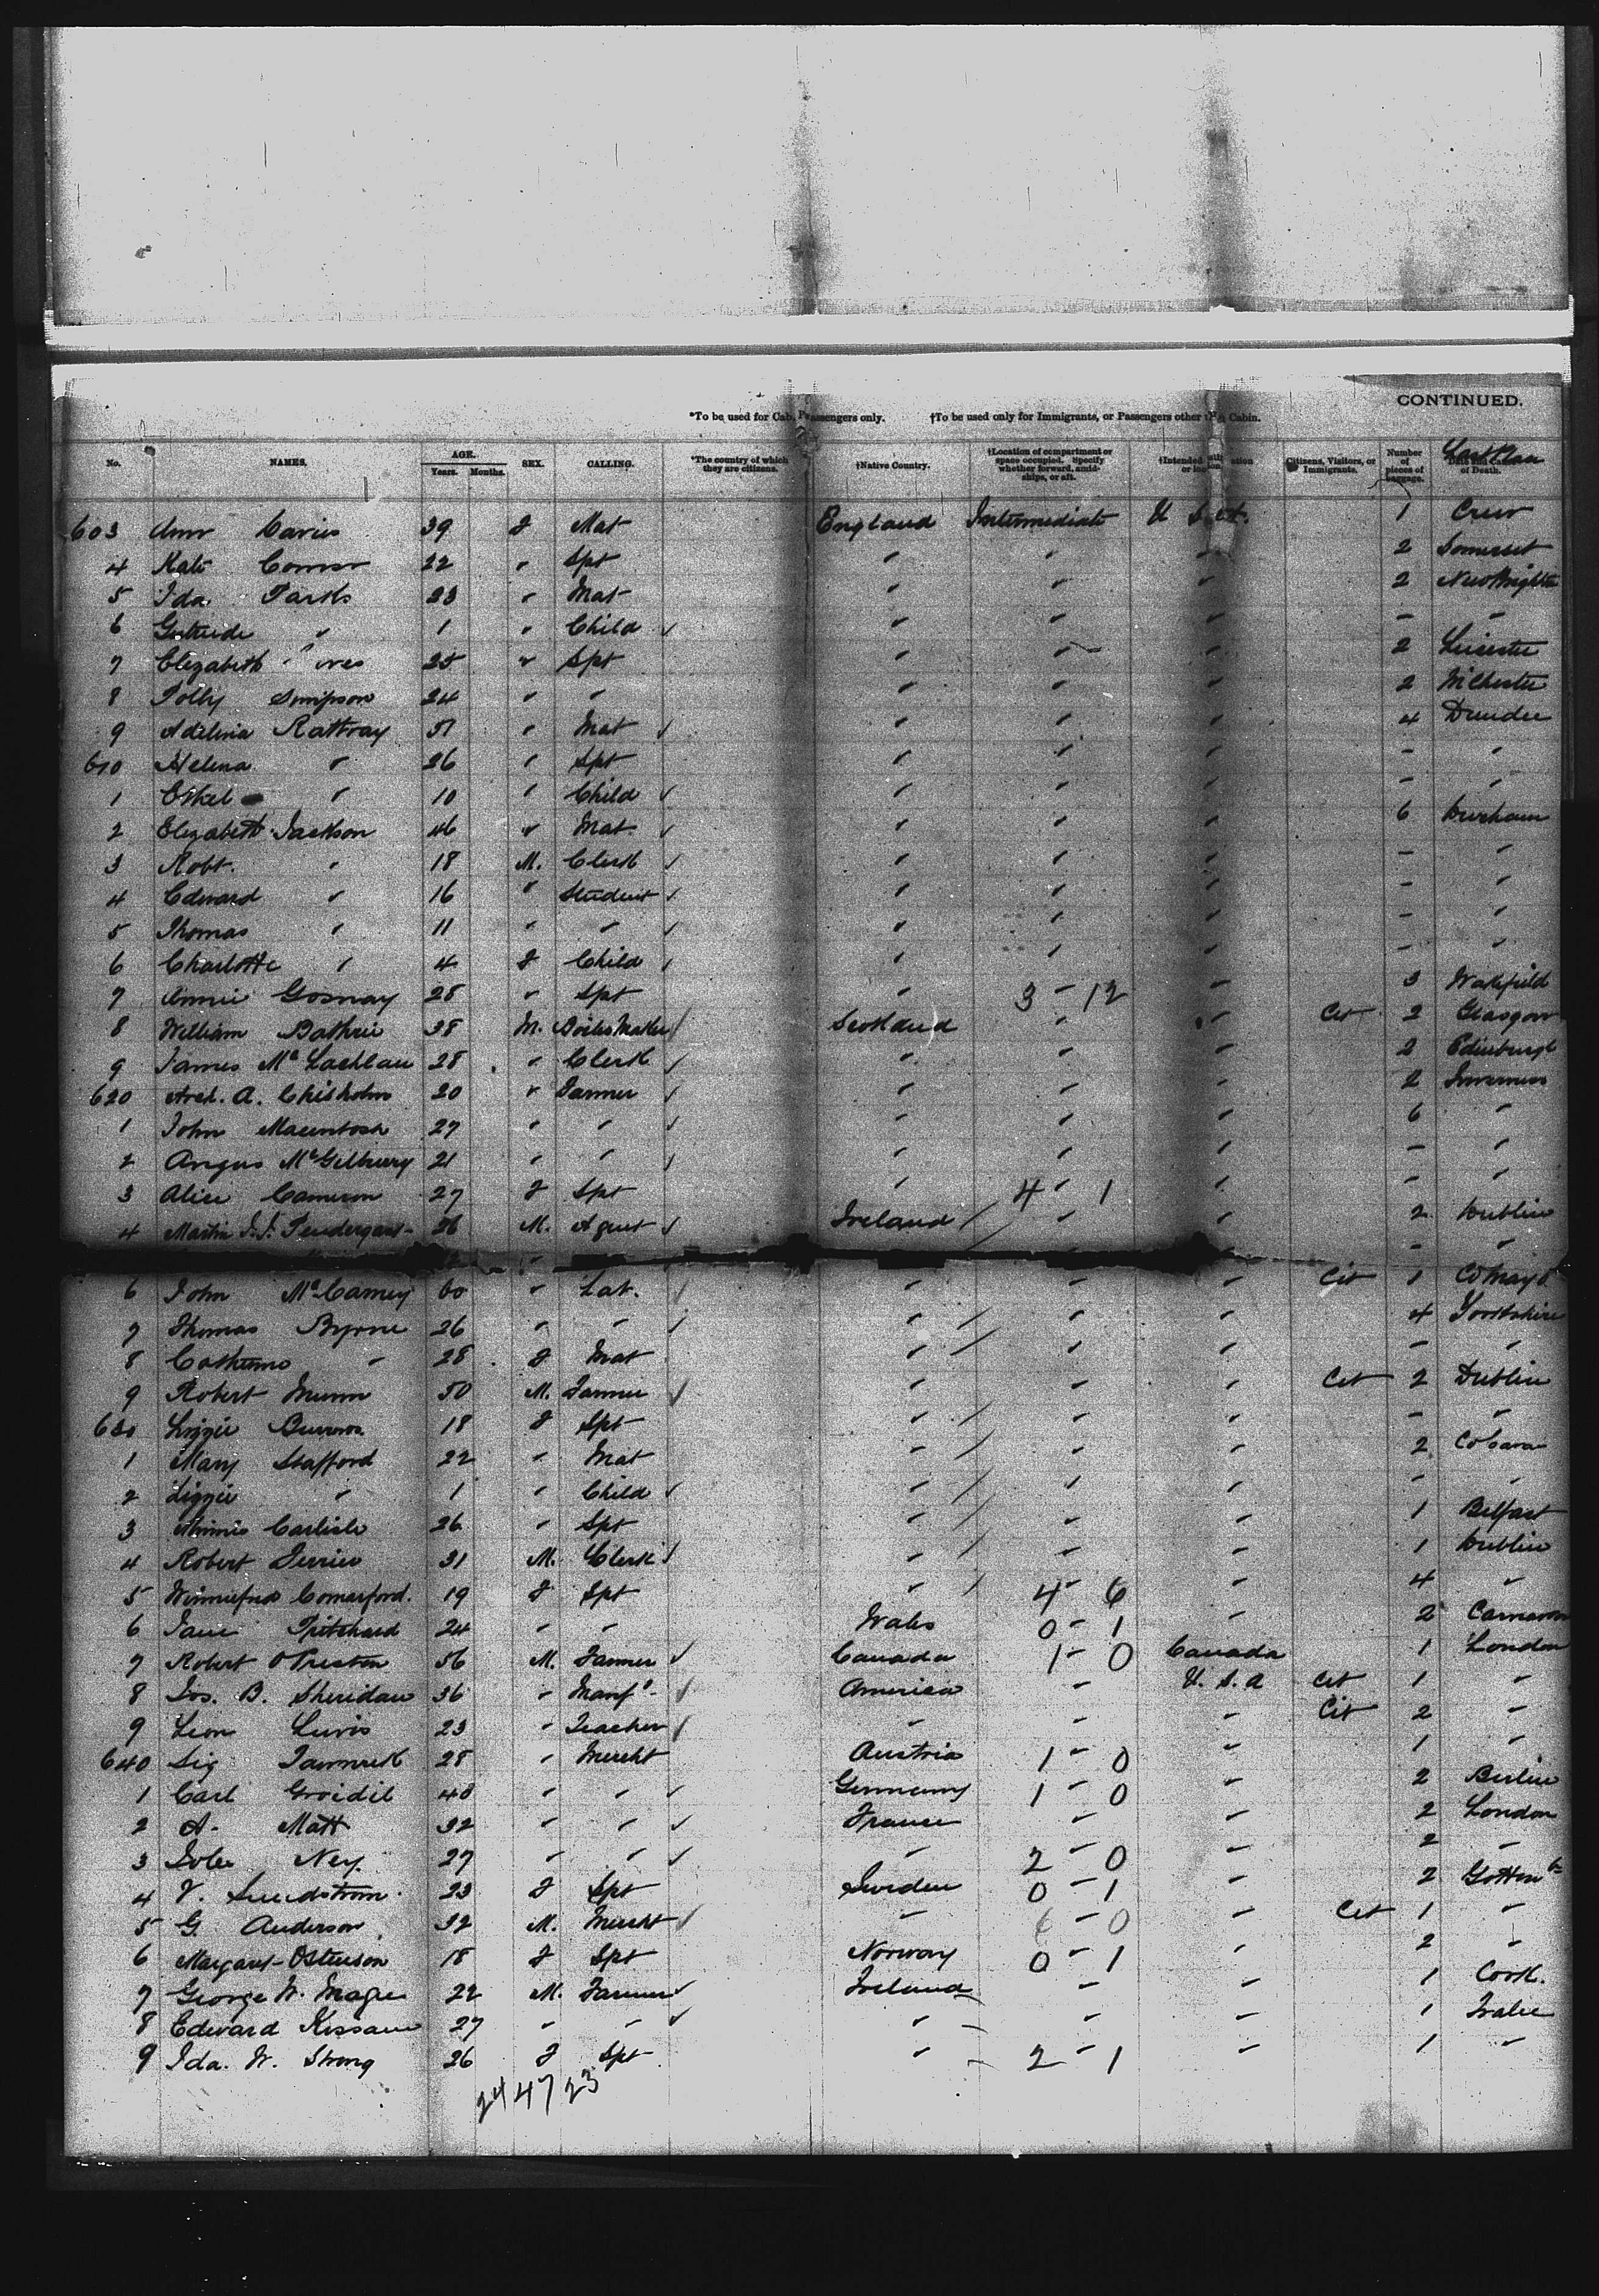 CONTINUED.
*To be used for Cabin Passengers only. †To be used only for Immigrants, or Passengers other than Cabin.
No. NAMES. AGE. Years. Months. SEX. CALLING. *The country of which they are citizens. †Native Country. †Location of compartment or space occupied. Specify whether forward, amidships, or aft. †Intended or Citizens, Visitors, or Immigrants. Number of pieces of baggage. of Death.
603 Ann Davies 39 F Mat England Intermediate U S A. 1
4 Kate 22 " Spt " " " 2 Somerset
5 Ida Parks 23 " Mat " " " 2
6 Gertrude " 1 " Child " " " - "
7 Elizabeth 25 " Spt " " " 2 Leicester
8 Polly Simpson 24 " " " " " 2
9 Adelina Rattray 51 " Mat " " " 4 Dundee
610 Helena " 26 " Spt " " " - "
1 Ethel " 10 " Child " " " - "
2 Elizabeth Jackson 46 " Mat " " " 6 Durham
3 Robt. " 18 M. Clerk " " " - "
4 Edward " 16 " Student " " " - "
5 Thomas " 11 " " " " " - "
6 Charlotte " 4 F Child " " " - "
7 Annie Gosnay 28 " Spt " 3 - 12 " 3 Wakefield
8 William 38 M. Boiler Maker Scotland " " Cit 2 Glasgow
9 James McLachlan 28 " Clerk " " " 2 Edinburgh
620 Arch. A. Chisholm 20 " Farmer " " " 2 Inverness
1 John Macintosh 27 " " " " " 6 "
2 Angus 21 " " " " " - "
3 Alice Cameron 27 F Spt " 4 - 1 " - "
4 Martin J.J. Pendergast 26 M. Agent Ireland " " 2 Dublin
6 John 60 " Lab. " " " Cit 1 Co Mayo
7 Thomas Byrne 26 " " " " " 4 Yorkshire
8 Catherine " 28 F Mat " " " - "
9 Robert Munn 50 M. Farmer " " " Cit 2 Dublin
630 Lizzie 18 F Spt " " " - "
1 Mary Stafford 22 " Mat " " " 2 Co Cavan
2 Lizzie " 1 " Child " " " - "
3 Minnie Carlisle 26 " Spt " " " 1 Belfast
4 Robert 31 M. Clerk " " " 1 Dublin
5 Winniefred Comerford. 19 F Spt " 4 - 6 " 4 "
6 Jane Pritchard 24 " " Wales 0 - 1 " 2 Carnarvon
7 Robert O Preston 56 M. Farmer Canada 1 - 0 Canada 1 London
8 Jos. B. Sheridan 36 " Manfr. America " U. S. A Cit 1 "
9 Leon Lewis 23 " Teacher " " " Cit 2 "
640 Sig 28 " Mercht Austria 1 - 0 " 1 "
1 Carl 40 " " Germany 1 - 0 " 2 Berlin
2 A. Matt 32 " " France " " 2 London
3 Jules Ney 27 " " " 2 - 0 " 2 "
4 V. Sundstrom 23 F Spt Sweden 0 - 1 " 2
5 G. Anderson 32 M. Mercht " - 0 " Cit 1 "
6 Margaret 18 F Spt Norway 0 - 1 " 2 "
7 George W. Magee 22 M. Farmer Ireland " " 1 Cork.
8 Edward Kissane 27 " " " " " 1 Tralee
9 Ida. W. Strong 26 F Spt " 2 - 1 " 1 "
24 47 23